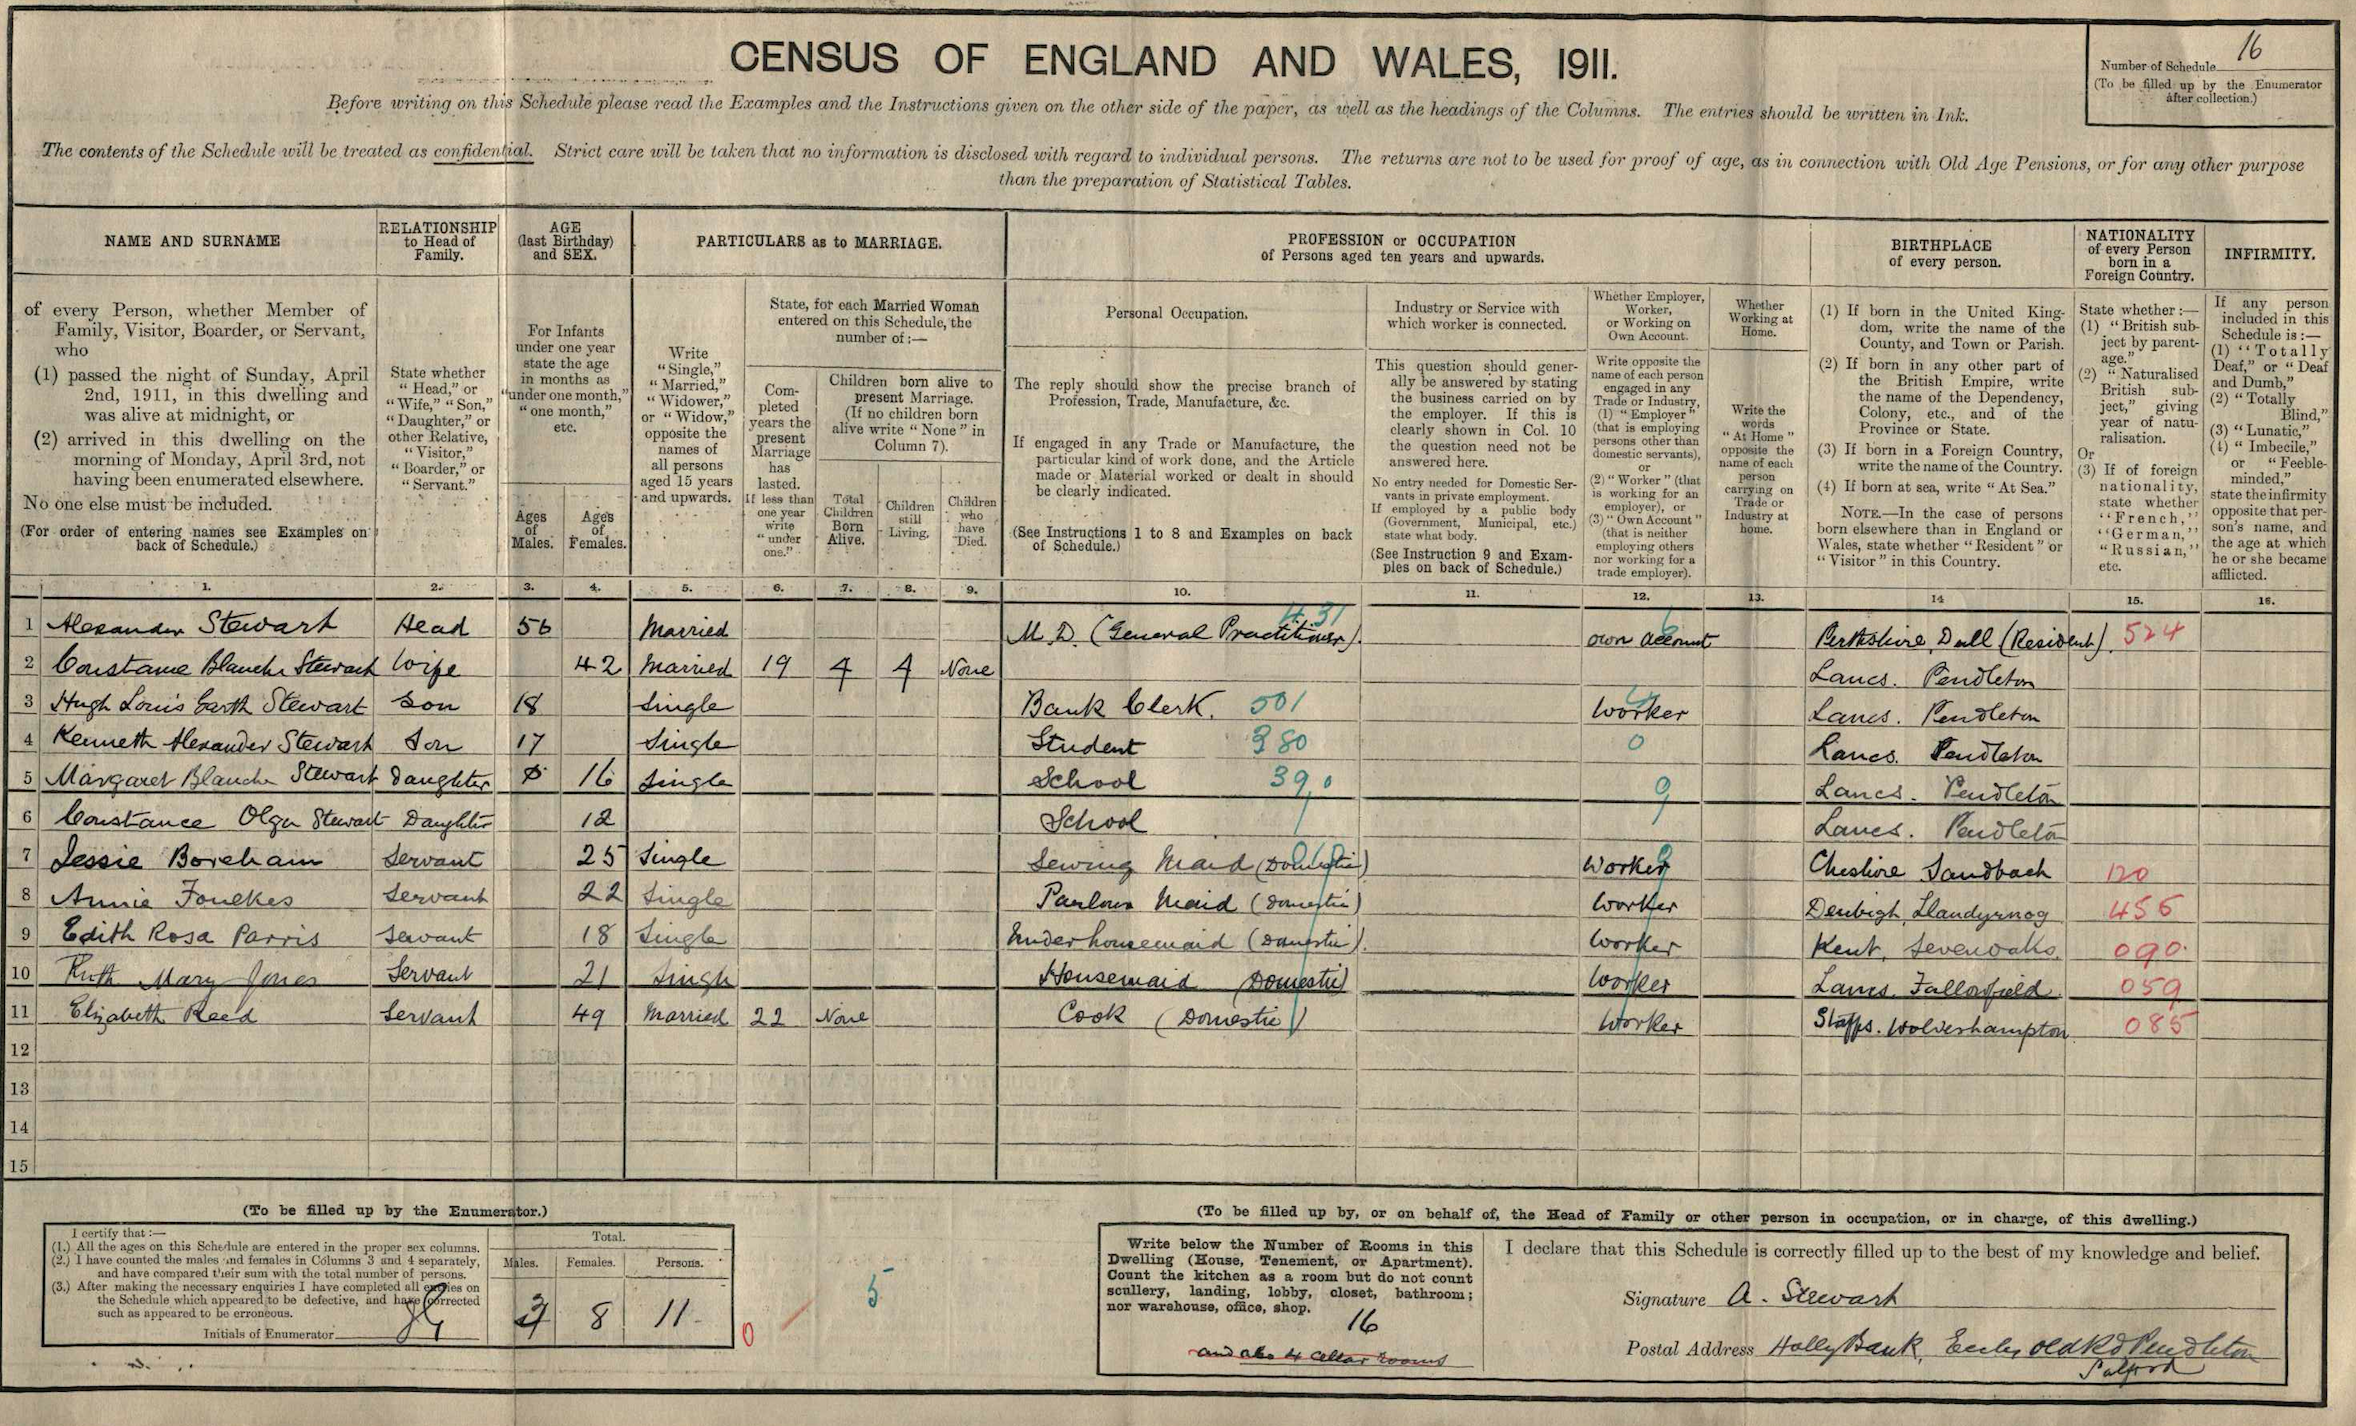 CENSUS OF ENGLAND AND WALES, 1911.
Number of Schedule 16
(To be filled up by the Enumerator
after collection.)
Before writing on this Schedule please read the Examples and the Instructions given on the other side of the paper, as well as the headings of the Columns. The entries should be written in Ink.
The contents of the Schedule will be treated as confidential. Strict care will be taken that no information is disclosed with regard to individual persons. The returns are not to be used for proof of age, as in connection with Old Age Pensions, or for any other purpose
than the preparation of Statistical Tables.
NAME AND SURNAME
of every Person, whether Member of
Family, Visitor, Boarder, or Servant,
who
(1) passed the night of Sunday, April
2nd, 1911, in this dwelling and
was alive at midnight, or
(2) arrived in this dwelling on the
morning of Monday, April 3rd, not
having been enumerated elsewhere.
No one else must be included.
(For order of entering names see Examples on
back of Schedule.)
RELATIONSHIP
to Head of
Family.
State whether
"Head," or
"Wife," "Son,"
"Daughter," or
other Relative,
"Visitor,"
"Boarder," or
"Servant."
AGE
(last Birthday)
and SEX.
For Infants
under one year
state the age
in months as
"under one month,"
"one month,"
etc.
Ages
of
Males.
Ages
of
Females.
PARTICULARS as to MARRIAGE.
Write
"Single,"
"Married,"
"Widower,"
or "Widow,"
opposite the
names of
all persons
aged 15 years
and upwards.
State, for each Married Woman
entered on this Schedule, the
number of :—
Com-
pleted
years the
present
Marriage
has
lasted.
If less than
one year
write
"under
one."
Children born alive to
present Marriage.
(If no children born
alive write "None" in
Column 7).
Total
Children
Born
Alive.
Children
still
Living.
Children
who
have
Died.
PROFESSION or OCCUPATION
of Persons aged ten years and upwards.
Personal Occupation.
The reply should show the precise branch of
Profession, Trade, Manufacture, &c.
If engaged in any Trade or Manufacture, the
particular kind of work done, and the Article
made or Material worked or dealt in should
be clearly indicated.
(See Instructions 1 to 8 and Examples on back
of Schedule.)
Industry or Service with
which worker is connected.
This question should gener-
ally be answered by stating
the business carried on by
the employer. If this is
clearly shown in Col. 10
the question need not be
answered here.
No entry needed for Domestic Ser-
vants in private employment.
If employed by a public body
(Government, Municipal, etc.)
state what body.
(See Instruction 9 and Exam-
ples on back of Schedule.)
Whether Employer,
Worker,
or Working on
Own Account.
Write opposite the
name of each person
engaged in any
Trade or Industry,
(1) "Employer"
(that is employing
persons other than
domestic servants),
or
(2) "Worker" (that
is working for an
employer), or
(3) "Own Account"
(that is neither
employing others
nor working for a
trade employer).
Whether
Working at
Home.
Write the
words
"At Home"
opposite the
name of each
person
carrying on
Trade or
Industry at
home.
BIRTHPLACE
of every person.
(1) If born in the United King-
dom, write the name of the
County, and Town or Parish.
(2) If born in any other part of
the British Empire, write
the name of the Dependency,
Colony, etc., and of the
Province or State.
(3) If born in a Foreign Country,
write the name of the Country.
(4) If born at sea, write "At Sea."
NOTE.—In the case of persons
born elsewhere than in England or
Wales, state whether "Resident" or
"Visitor" in this Country.
NATIONALITY
of every Person
born in a
Foreign Country.
State whether :—
(1) "British sub-
ject by parent-
age."
(2) "Naturalised
British sub-
ject," giving
year of natu-
ralisation.
Or
(3) If of foreign
nationality,
state whether
"French,"
"German,"
"Russian,"
etc.
INFIRMITY.
If any person
included in this
Schedule is :—
(1) "Totally
Deaf," or "Deaf
and Dumb,"
(2) "Totally
Blind,"
(3) "Lunatic,"
(4) "Imbecile,"
or "Feeble-
minded,"
state the infirmity
opposite that per-
son's name, and
the age at which
he or she became
afflicted.
1. 2. 3. 4. 5. 6. 7. 8. 9. 10. 11. 12. 13. 14 15. 16.
1 Alexander Stewart Head 56 Married M.D. (General Practitioner). 431 own account Perthshire, Dull (Resident). 524
2 Constance Blanche Stewart Wife 42 Married 19 4 4 None Lancs. Pendleton
3 Hugh Louis Garth Stewart Son 18 Single Bank Clerk. 501 Worker Lancs. Pendleton
4 Kenneth Alexander Stewart Son 17 Single Student 380 0 Lancs. Pendleton
5 Margaret Blanche Stewart Daughter 16 Single School 390 9 Lancs. Pendleton
6 Constance Olga Stewart Daughter 12 School Lancs. Pendleton
7 Jessie Boreham Servant 25 Single Sewing Maid (Domestic) Worker Cheshire Sandbach 120
8 Annie Foulkes Servant 22 Single Parlour Maid (Domestic) Worker Denbigh, Llandyrnog 456
9 Edith Rosa Parris Servant 18 Single Underhousemaid (Domestic). Worker Kent, Sevenoaks. 090
10 Ruth Mary Jones Servant 21 Single Housemaid (Domestic) Worker Lancs. Fallowfield. 059
11 Elizabeth Reed Servant 49 Married 22 None Cook (Domestic) Worker Staffs. Wolverhampton 085
12
13
14
15
(To be filled up by the Enumerator.)
I certify that :—
(1.) All the ages on this Schedule are entered in the proper sex columns.
(2.) I have counted the males and females in Columns 3 and 4 separately,
and have compared their sum with the total number of persons.
(3.) After making the necessary enquiries I have completed all entries on
the Schedule which appeared to be defective, and have corrected
such as appeared to be erroneous.
Initials of Enumerator
Total.
Males. Females. Persons.
3 8 11
0
5
(To be filled up by, or on behalf of, the Head of Family or other person in occupation, or in charge, of this dwelling.)
Write below the Number of Rooms in this
Dwelling (House, Tenement, or Apartment).
Count the kitchen as a room but do not count
scullery, landing, lobby, closet, bathroom;
nor warehouse, office, shop.
16
and also 4 cellar rooms
I declare that this Schedule is correctly filled up to the best of my knowledge and belief.
Signature A. Stewart
Postal Address Holly Bank, Eccles Old Rd Pendleton
Salford